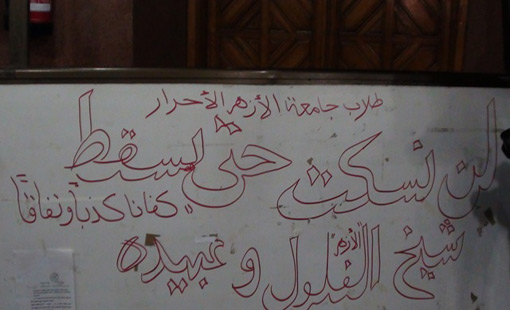 طلاب جامعة الأزهر الأحرار
لن نسكت حتى يسقط
"كفانا كذباً ونفاقاً
شيخ الأزهر الفلول و عبيده